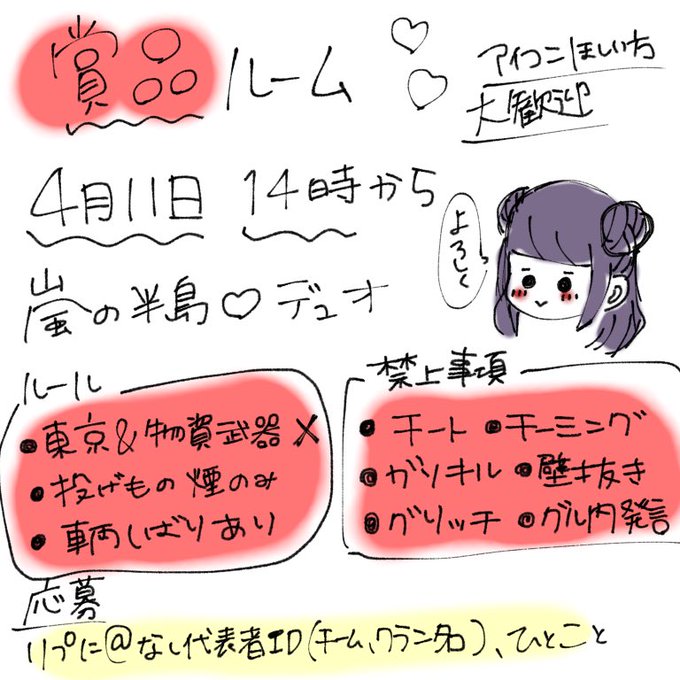 賞品ルーム♡♡
アイコンほしい方
大歓迎
4月11日 14時から
よろしくっ
嵐の半島♡デュオ
ルール
●東京&物資武器✕
●投げもの煙のみ
●車両しばりあり
禁止事項
●チート ●チーミング
●ガソキル ●壁抜き
●グリッチ ●グル内発言
応募
リプに@なし代表者ID(チーム、クラン名)、ひとこと